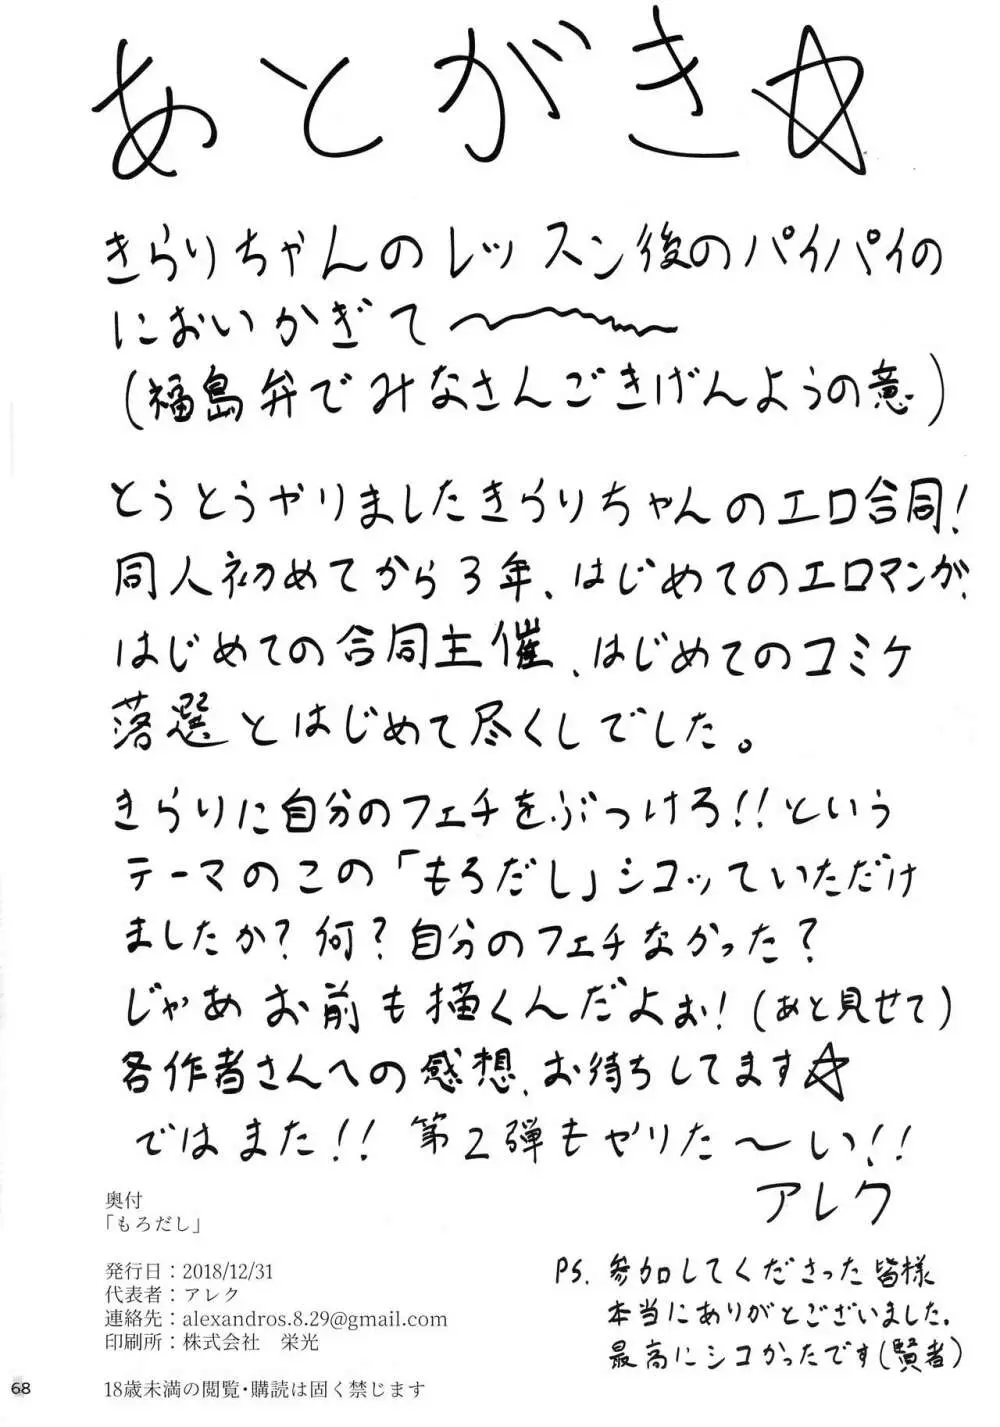 あとがき☆
きらりちゃんのレッスン後のパイパイの
においかぎて〜
(福島弁でみなさんごきげんようの意)
とうとうやりましたきらりちゃんのエロ合同!
同人初めてから3年、はじめてのエロマンガ、
はじめての合同主催、はじめてのコミケ
落選とはじめて尽くしでした。
きらりに自分のフェチをぶつけろ!!という
テーマのこの「もろだし」シコッていただけ
ましたか?何?自分のフェチなかった?
じゃあお前も描くんだよぉ!(あと見せて)
各作者さんへの感想、お待ちしてます☆
ではまた!!第2弾もやりた〜い!!
アレク
奥付
「もろだし」
発行日:2018/12/31
代表者:アレク
連絡先:alexandros.8.29@gmail.com
印刷所:株式会社 栄光
PS. 参加してくださった皆様
本当にありがとございました。
最高にシコかったです(賢者)
68
18歳未満の閲覧・購読は固く禁じます